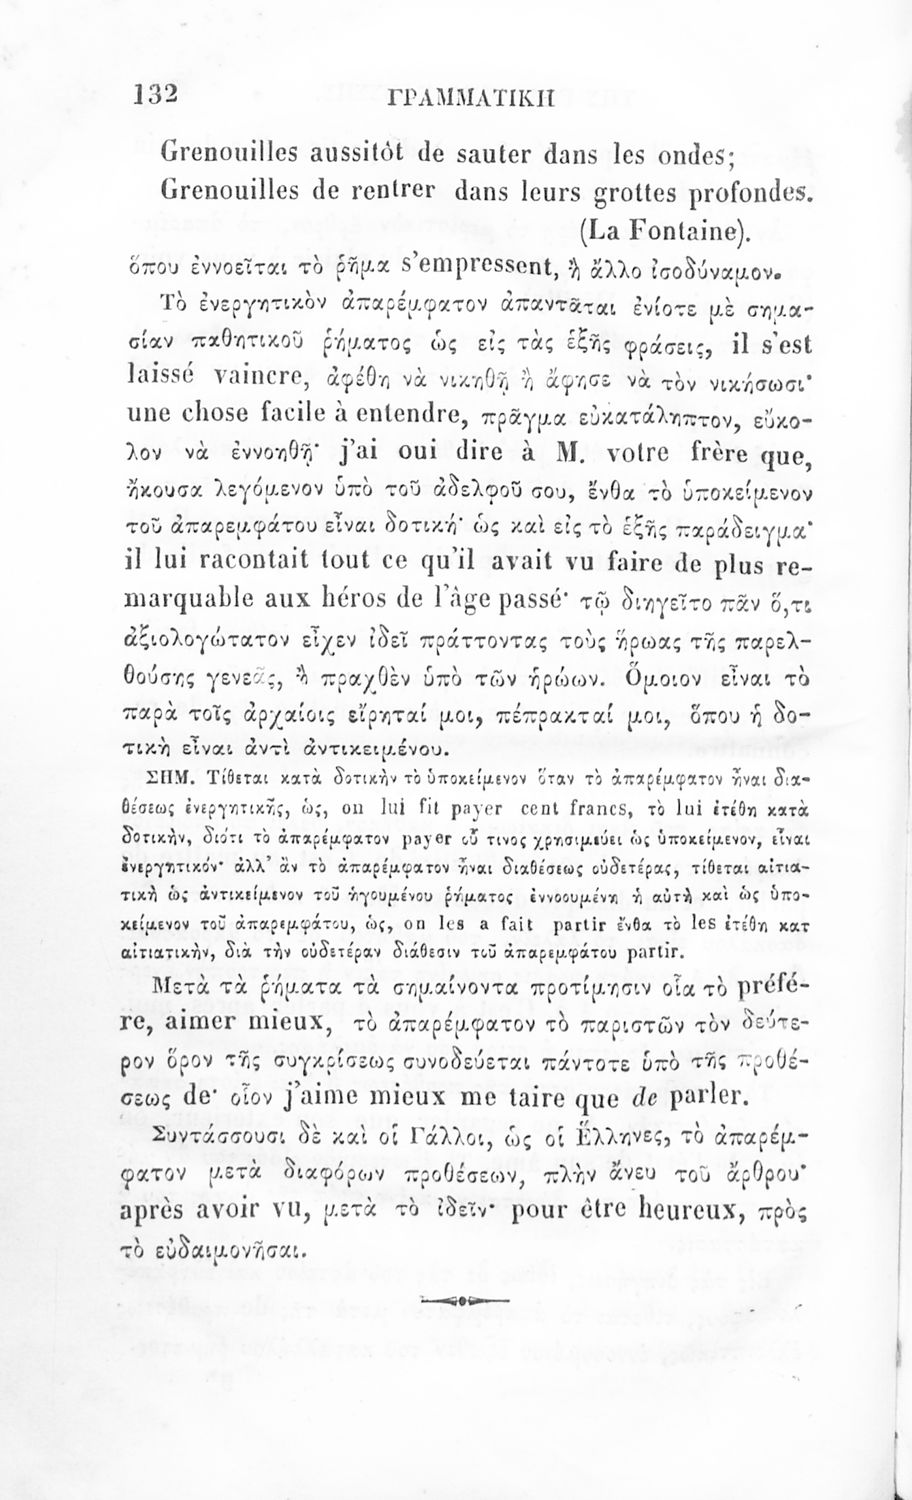 132 ΓΡΑΜΜΑΤΙΚΗ
Grenouilles aussitôt de sauter dans les ondes;
Grenouilles de rentrer dans leurs grottes profondes.
(La Fontaine).
ὅπου ἐννοεῖται τὸ ῥῆμα s'empressent, ἢ ἄλλο ἰσοδύναμον.
Τὸ ἐνεργητικὸν ἀπαρέμφατον ἀπαντᾶται ἐνίοτε μὲ σημα-
σίαν παθητικοῦ ῥήματος ὡς εἰς τὰς ἑξῆς φράσεις, il s'est
laissé vaincre, ἀφέθη νὰ νικηθῇ ἢ ἄφησε νὰ τὸν νικήσωσι·
une chose facile à entendre, πρᾶγμα εὐκατάληπτον, εὔκο-
λον νὰ ἐννοηθῇ· j'ai oui dire à M. votre frère que,
ἤκουσα λεγόμενον ὑπὸ τοῦ ἀδελφοῦ σου, ἔνθα τὸ ὑποκείμενον
τοῦ ἀπαρεμφάτου εἶναι δοτική· ὡς καὶ εἰς τὸ ἑξῆς παράδειγμα·
il lui racontait tout ce qu'il avait vu faire de plus re-
marquable aux héros de l'âge passé· τῷ διηγεῖτο πᾶν ὅ,τι
ἀξιολογώτατον εἶχεν ἰδεῖ πράττοντας τοὺς ἥρωας τῆς παρελ-
θούσης γενεᾶς, ἢ πραχθὲν ὑπὸ τῶν ἡρώων. Ὅμοιον εἶναι τὸ
παρὰ τοῖς ἀρχαίοις εἴρηταί μοι, πέπρακταί μοι, ὅπου ἡ δο-
τικὴ εἶναι ἀντὶ ἀντικειμένου.
ΣΗΜ. Τίθεται κατὰ δοτικὴν τὸ ὑποκείμενον ὅταν τὸ ἀπαρέμφατον ἦναι δια-
θέσεως ἐνεργητικῆς, ὡς, on lui fit payer cent francs, τὸ lui ἐτέθη κατὰ
δοτικὴν, διότι τὸ ἀπαρέμφατον payer οὗ τινος χρησιμεύει ὡς ὑποκείμενον, εἶναι
ἐνεργητικόν· ἀλλ' ἂν τὸ ἀπαρέμφατον ἦναι διαθέσεως οὐδετέρας, τίθεται αἰτια-
τικὴ ὡς ἀντικείμενον τοῦ ἡγουμένου ῥήματος ἐννοουμένη ἡ αὐτὴ καὶ ὡς ὑπο-
κείμενον τοῦ ἀπαρεμφάτου, ὡς, on les a fait partir ἔνθα τὸ les ἐτέθη κατ
αἰτιατικὴν, διὰ τὴν οὐδετέραν διάθεσιν τοῦ ἀπαρεμφάτου partir.
Μετὰ τὰ ῥήματα τὰ σημαίνοντα προτίμησιν οἷα τὸ préfé-
re, aimer mieux, τὸ ἀπαρέμφατον τὸ παριστῶν τὸν δεύτε-
ρον ὅρον τῆς συγκρίσεως συνοδεύεται πάντοτε ὑπὸ τῆς προθέ-
σεως de· οἷον j'aime mieux me taire que de parler.
Συντάσσουσι δὲ καὶ οἱ Γάλλοι, ὡς οἱ Ἕλληνες, τὸ ἀπαρέμ-
φατον μετὰ διαφόρων προθέσεων, πλὴν ἄνευ τοῦ ἄρθρου·
après avoir vu, μετὰ τὸ ἰδεῖν· pour être heureux, πρὸς
τὸ εὐδαιμονῆσαι.